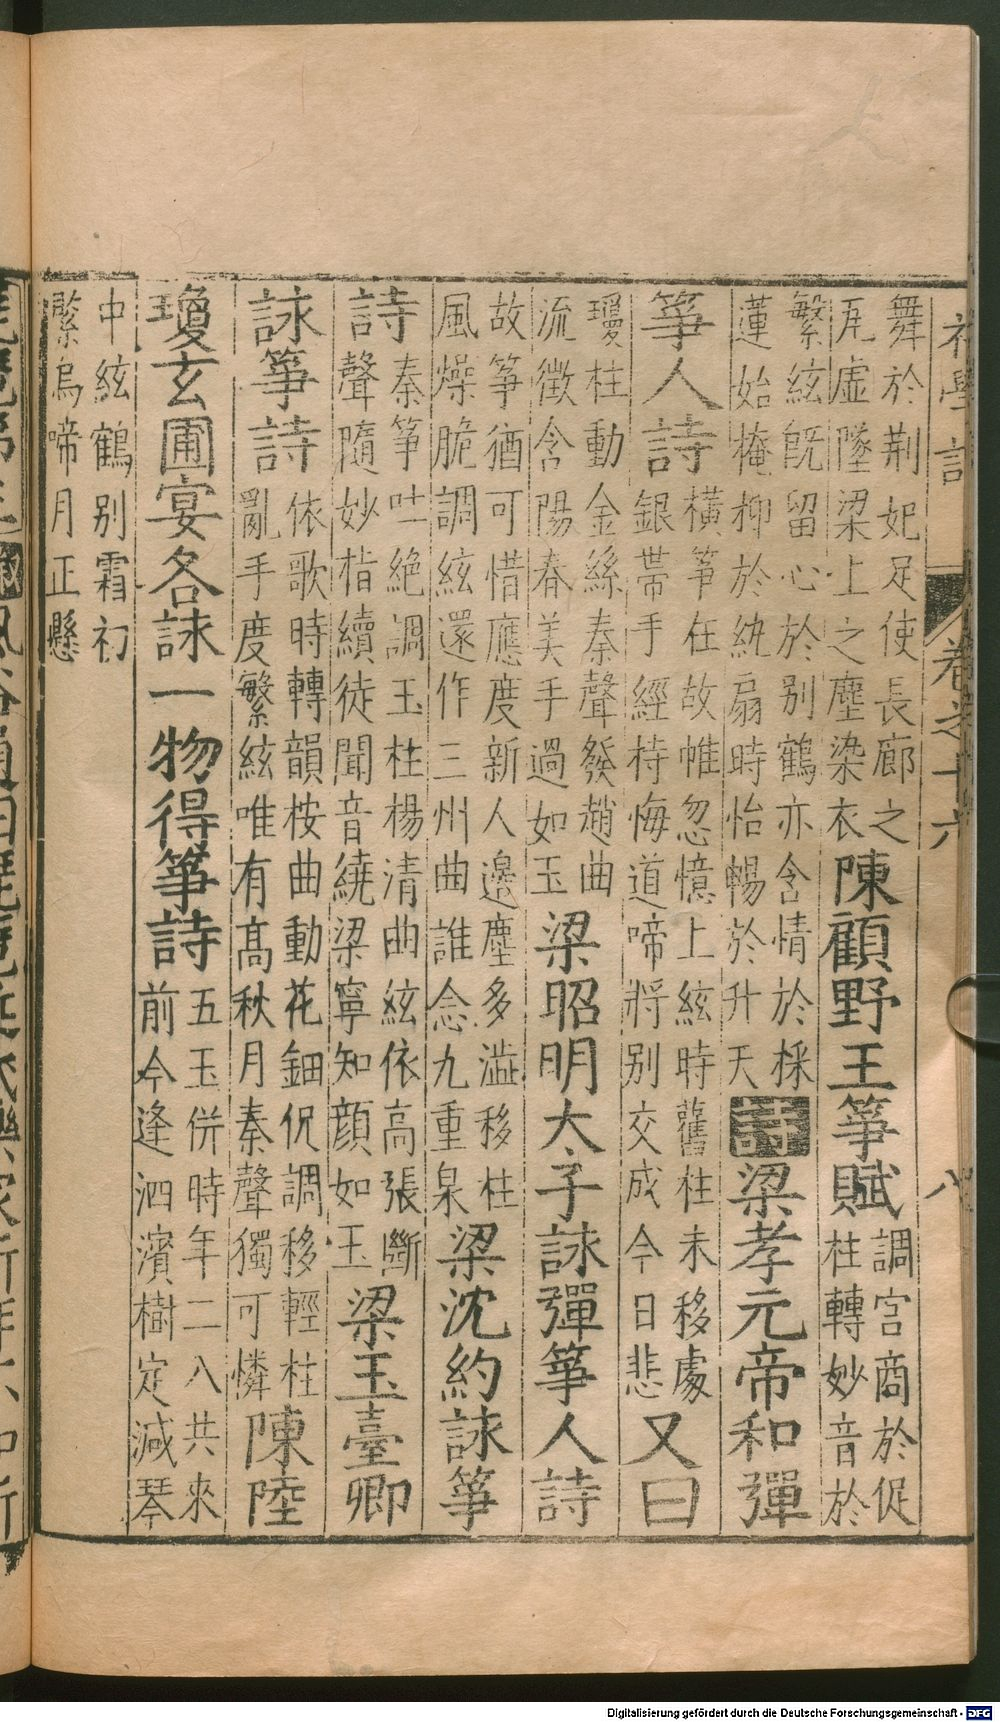 初學記 卷之十六 八
舞於荆妃足使長廊之
瓦虛墜梁上之塵染衣陳顧野王箏賦調宮商於促
柱轉妙音於
繁絃旣留心於别鶴亦含情於採
蓮始掩抑於紈扇時怡暢於升天詩梁孝元帝和彈
箏人詩橫箏在故帷忽憶上絃時舊柱未移處
銀帶手經持悔道啼將别交成今日悲又曰
瓊柱動金絲秦聲發趙曲
流徵含陽春美手過如玉梁昭明太子詠彈箏人詩
故箏猶可惜應度新人邊塵多澁移柱
風燥脆調絃還作三州曲誰念九重泉梁沈約詠箏
詩秦箏吐絶調玉柱楊清曲絃依高張斷
聲隨妙指續徒聞音繞梁寧知顔如玉梁玉臺卿
詠箏詩依歌時轉韻桉曲動花鈿促調移輕柱
亂手度繁絃唯有高秋月秦聲獨可憐陳陸
瓊玄圃宴各詠一物得箏詩五玉併時年二八共來
前今逢泗濱樹定減琴
中絃鶴别霜初
緊烏啼月正懸
Digitalisierung gefördert durch die Deutsche Forschungsgemeinschaft - DFG